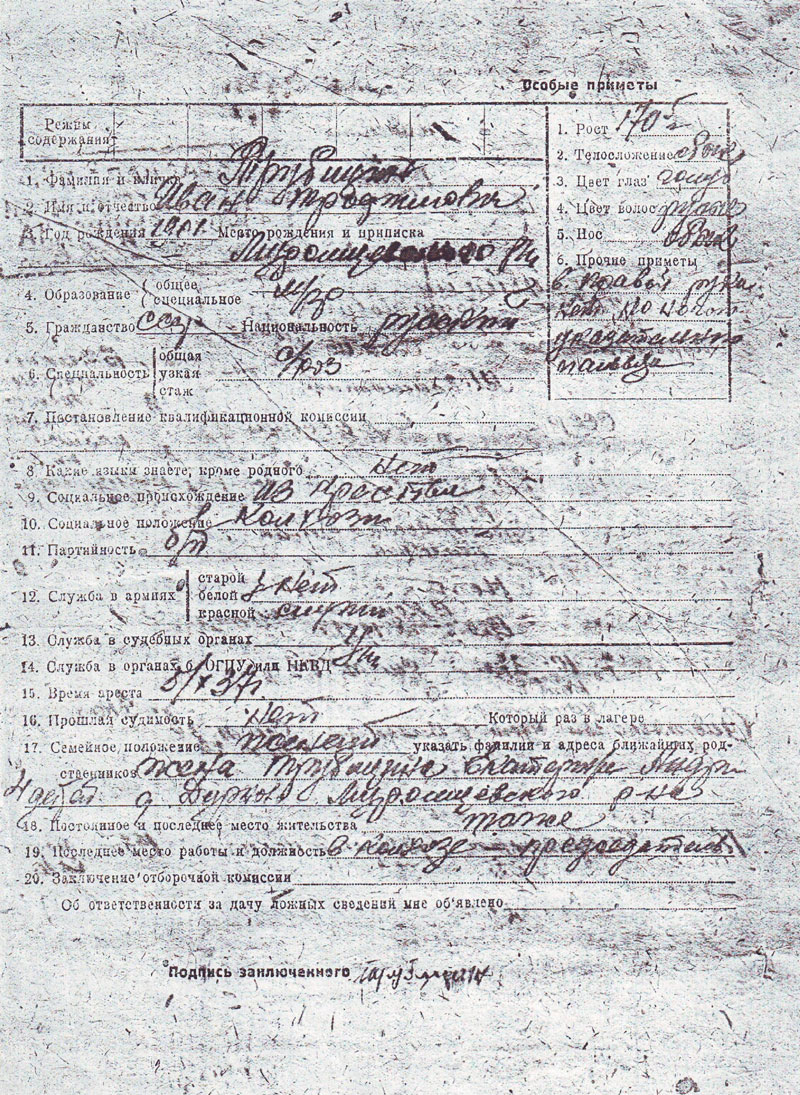 Особые приметы
Режим
содержания
1. Рост 170 с
2. Телосложение обыч
3. Цвет глаз голуб
4. Цвет волос
5. Нос обыч
6. Прочие приметы
в правой руке
нет ногот
указательного
пальца
1. Фамилия и кличка Трубицин
2. Имя и отчество Иван Трофимович
3. Год рождения 1901 Место рождения и приписка
4. Образование общее
специальное
5. Гражданство ссср Национальность русский
6. Специальность общая с/хоз
узкая
стаж
7. Постановление квалификационной комиссии
8 Какие языки знаете, кроме родного нет
9. Социальное происхождение из крестьян
10. Социальное положение колхозн
11. Партийность б/п
12. Служба в армиях старой нет
белой
красной
13. Служба в судебных органах
14. Служба в органах б. ОГПУ или НКВД
15. Время ареста 5/X 37г.
16. Прошлая судимость нет Который раз в лагере
17. Семейное положение женат указать фамилии и адреса ближайших род-
ственников жена Трубицина Екатерина Андр
4 детей д
18. Постоянное и последнее место жительства тоже
19. Последнее место работы и должность в колхозе – председатель
20. Заключение отборочной комиссии
Об ответственности за дачу ложных сведений мне об'явлено
Подпись заключенного Трубицин